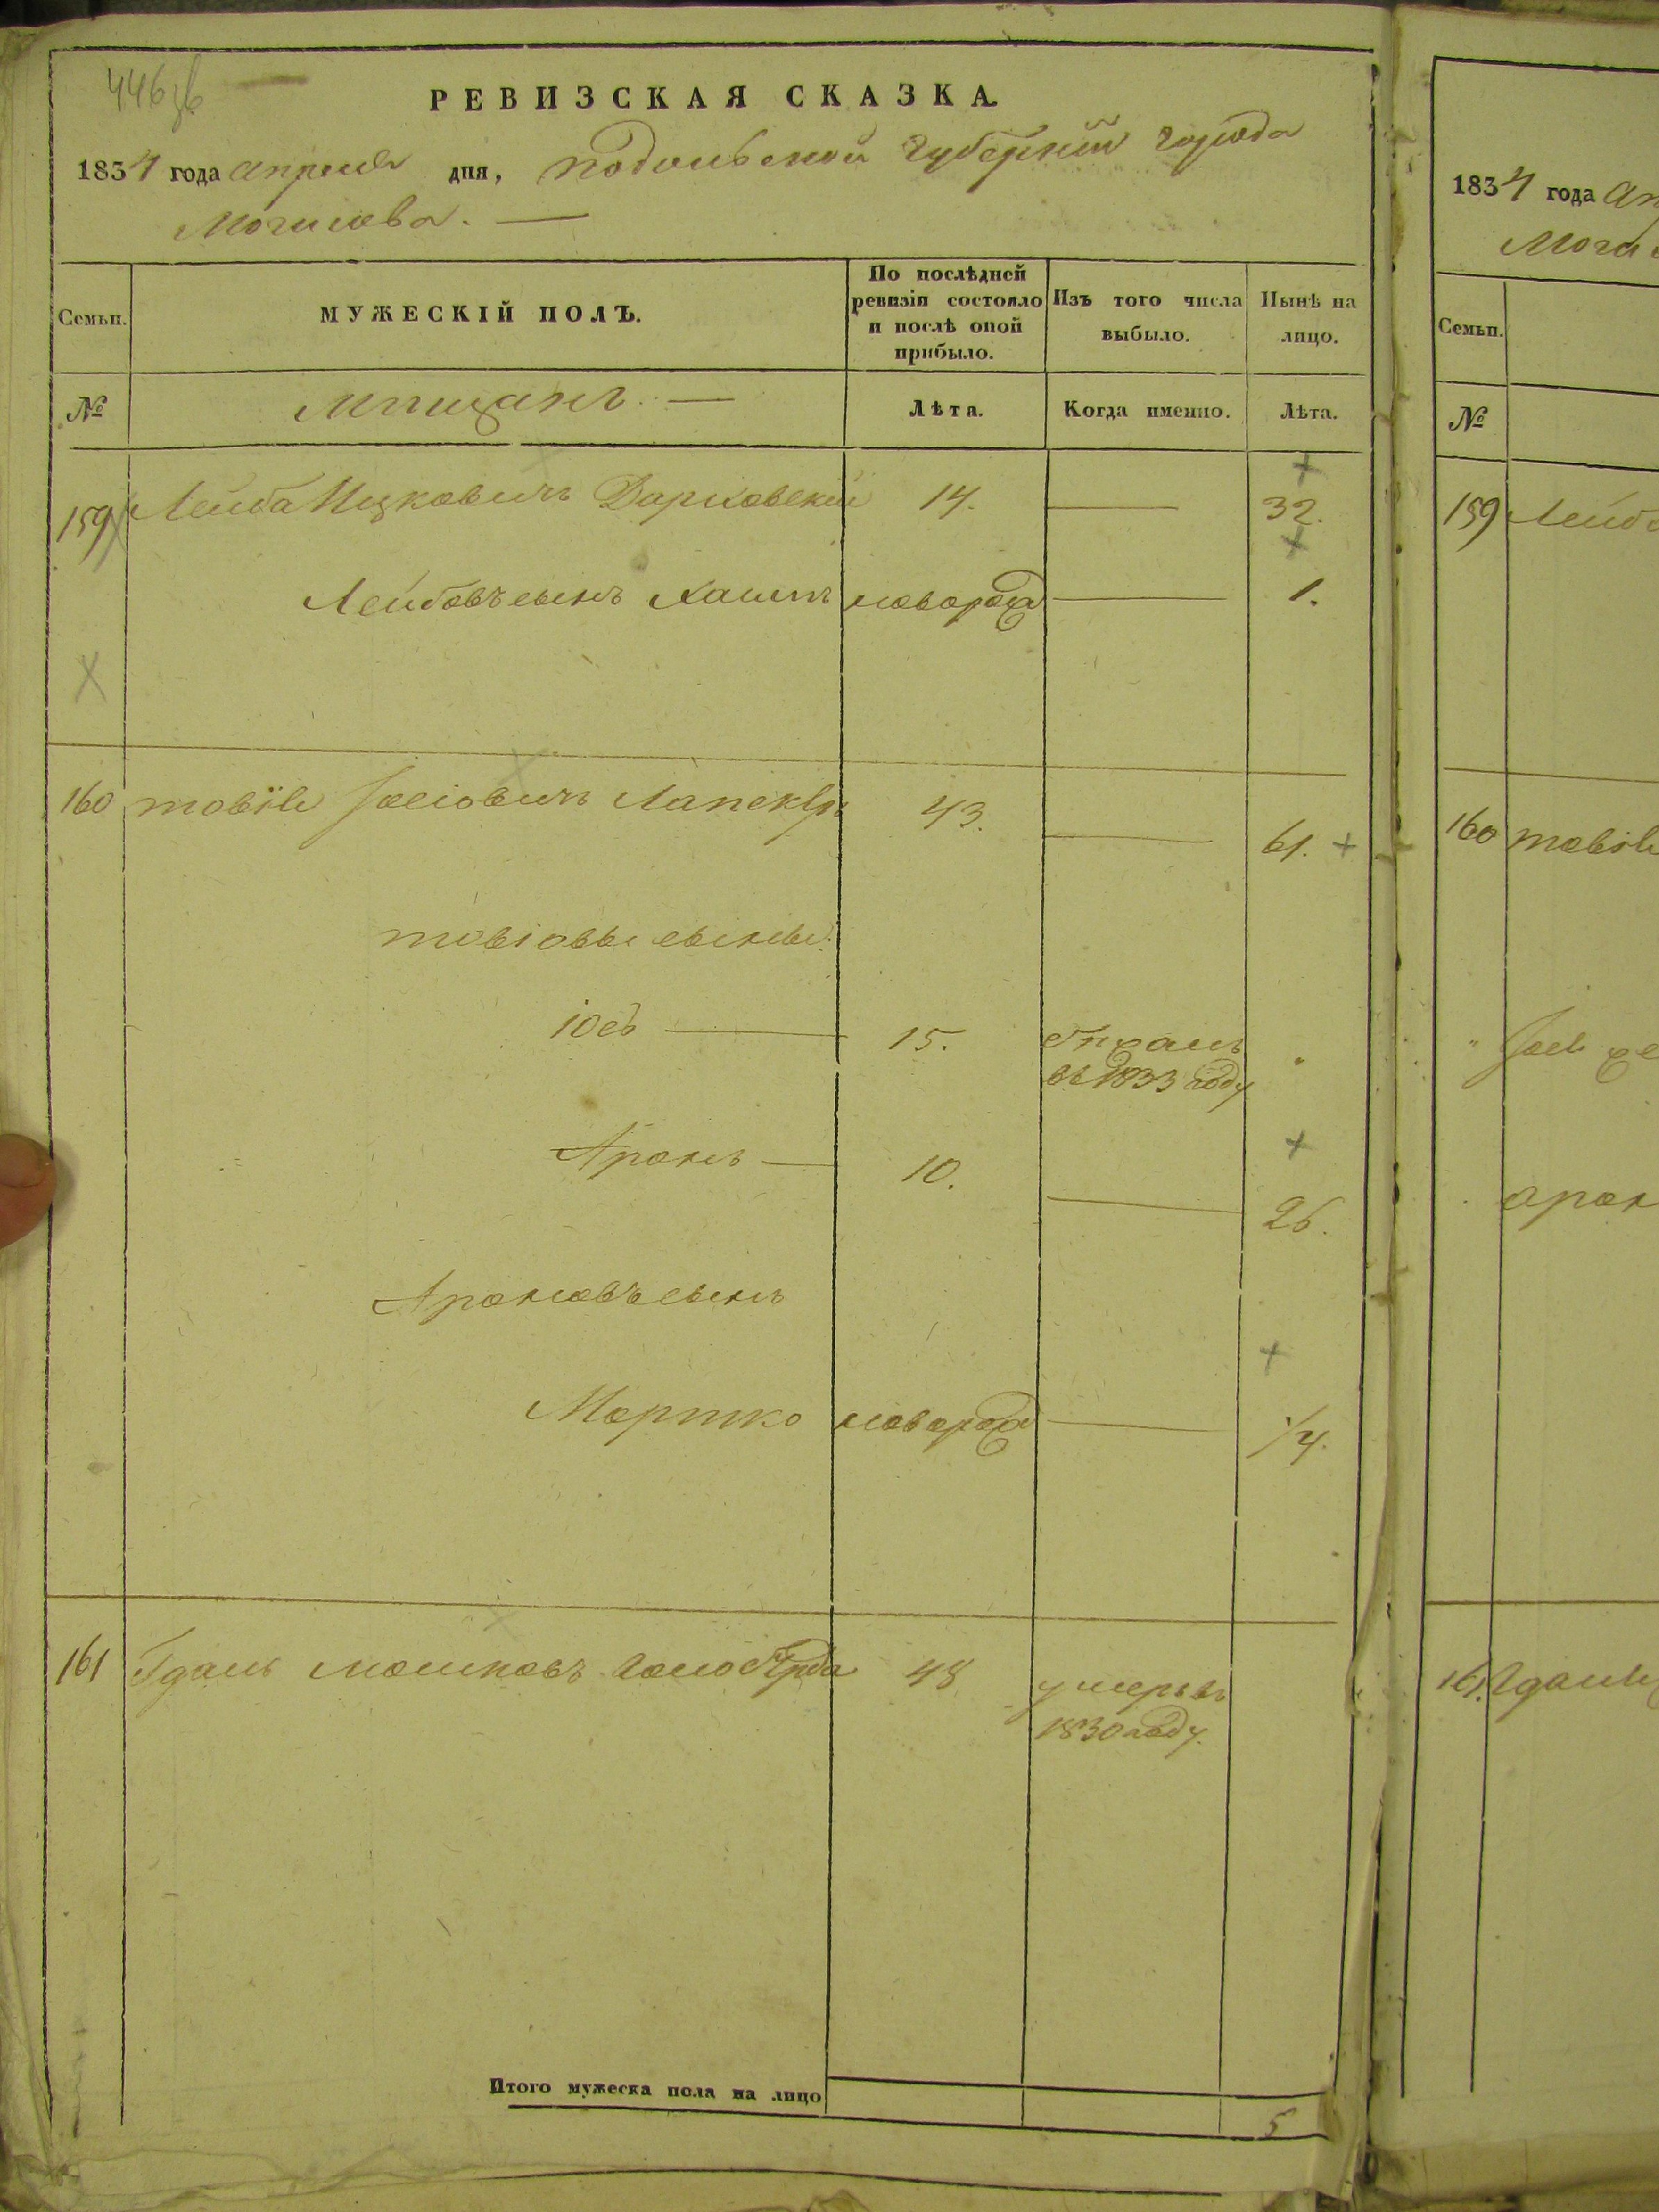 446
РЕВИЗСКАЯ СКАЗКА.
1834 года апреля дня, Подольской губернии города
Могилева. —
Семьи. МУЖЕСКІЙ ПОЛЪ. По послѣдней ревизіи состояло и послѣ оной прибыло. Изъ того числа выбыло. Нынѣ на лицо.
№ Мещанъ. — Лѣта. Когда именно. Лѣта.
159 Лейба Ицковичъ 14. — 32.
Лейбовъ сынъ Хаимъ новорож — 1.
160 товій Іосіовичъ 43. — 61.
товіовы сыны
Іось — 15. въ 1833 году
Аронъ — 10. — 26.
Ароновъ сынъ
Мортко новорож — 1/4.
161 Мошковъ 48 умеръ въ
1830 году.
Итого мужеска пола на лицо 5
1834 года ап
Моги
Семьи.
№
159 Лейб
160 товій
арон
161.